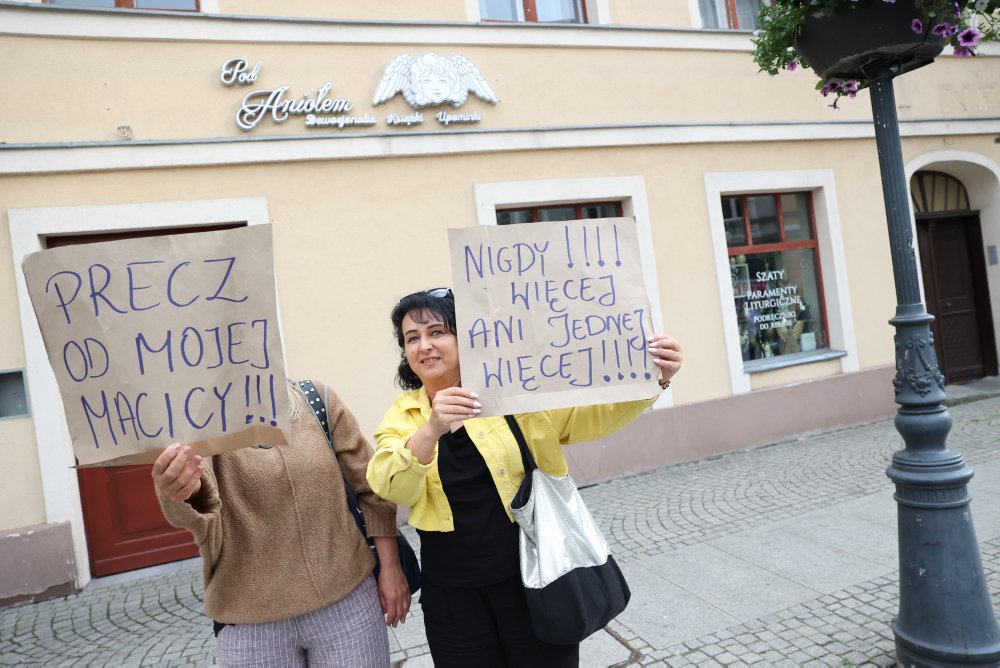 Pod
Aniołem
Dewocjonalia Książki Upominki
PRECZ
OD MOJEJ
MACICY!!!
NIGDY!!!!
WIĘCEJ
ANI JEDNEJ
WIĘCEJ!!!!
SZATY
PARAMENTY
LITURGICZNE
PODRĘCZNIKI
DO RELIGII